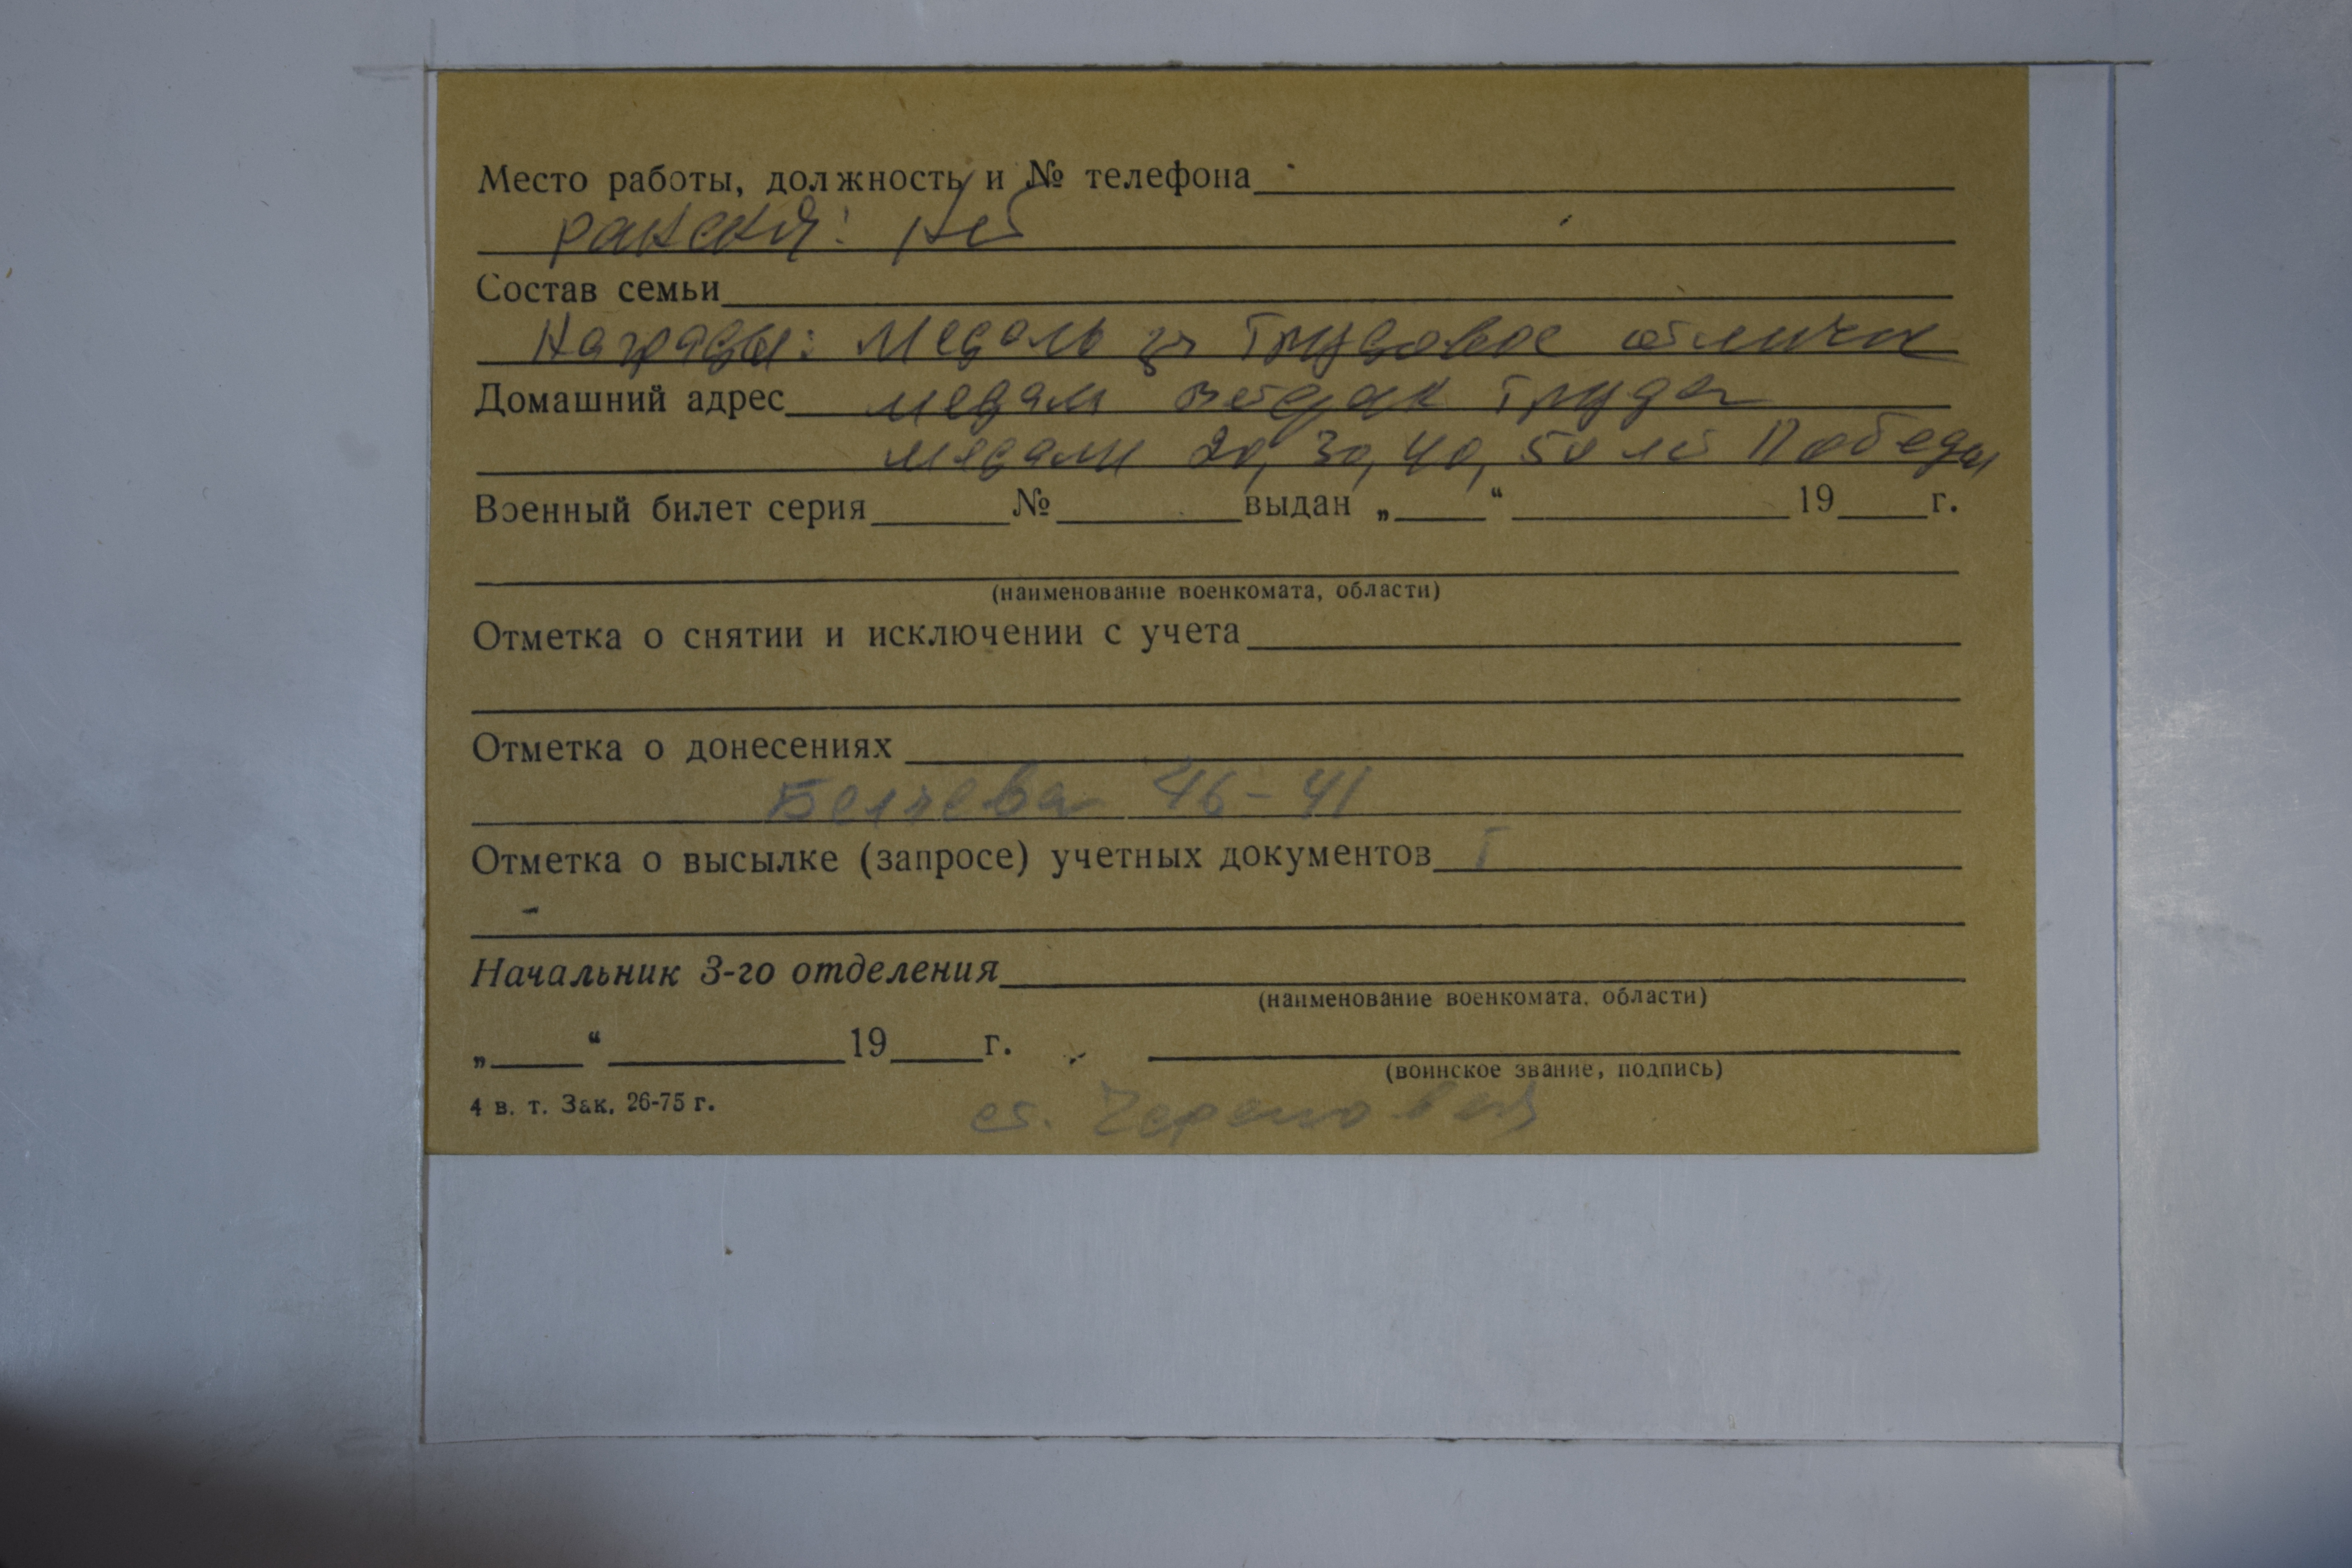 Место работы, должность и № телефона
ранения: Нет
Состав семьи
Награды: Медаль за Трудовое отличие
Домашний адрес медали ветеран труда
медали 20, 30, 40, 50 лет Победы
Военный билет серия № выдан „ “ 19 г.
(наименование военкомата, области)
Отметка о снятии и исключении с учета
Отметка о донесениях
46-41
Отметка о высылке (запросе) учетных документов
Начальник 3-го отделения
(наименование военкомата, области)
„ “ 19 г.
(воинское звание, подпись)
4 в. т. Зак. 26-75 г.
ст.